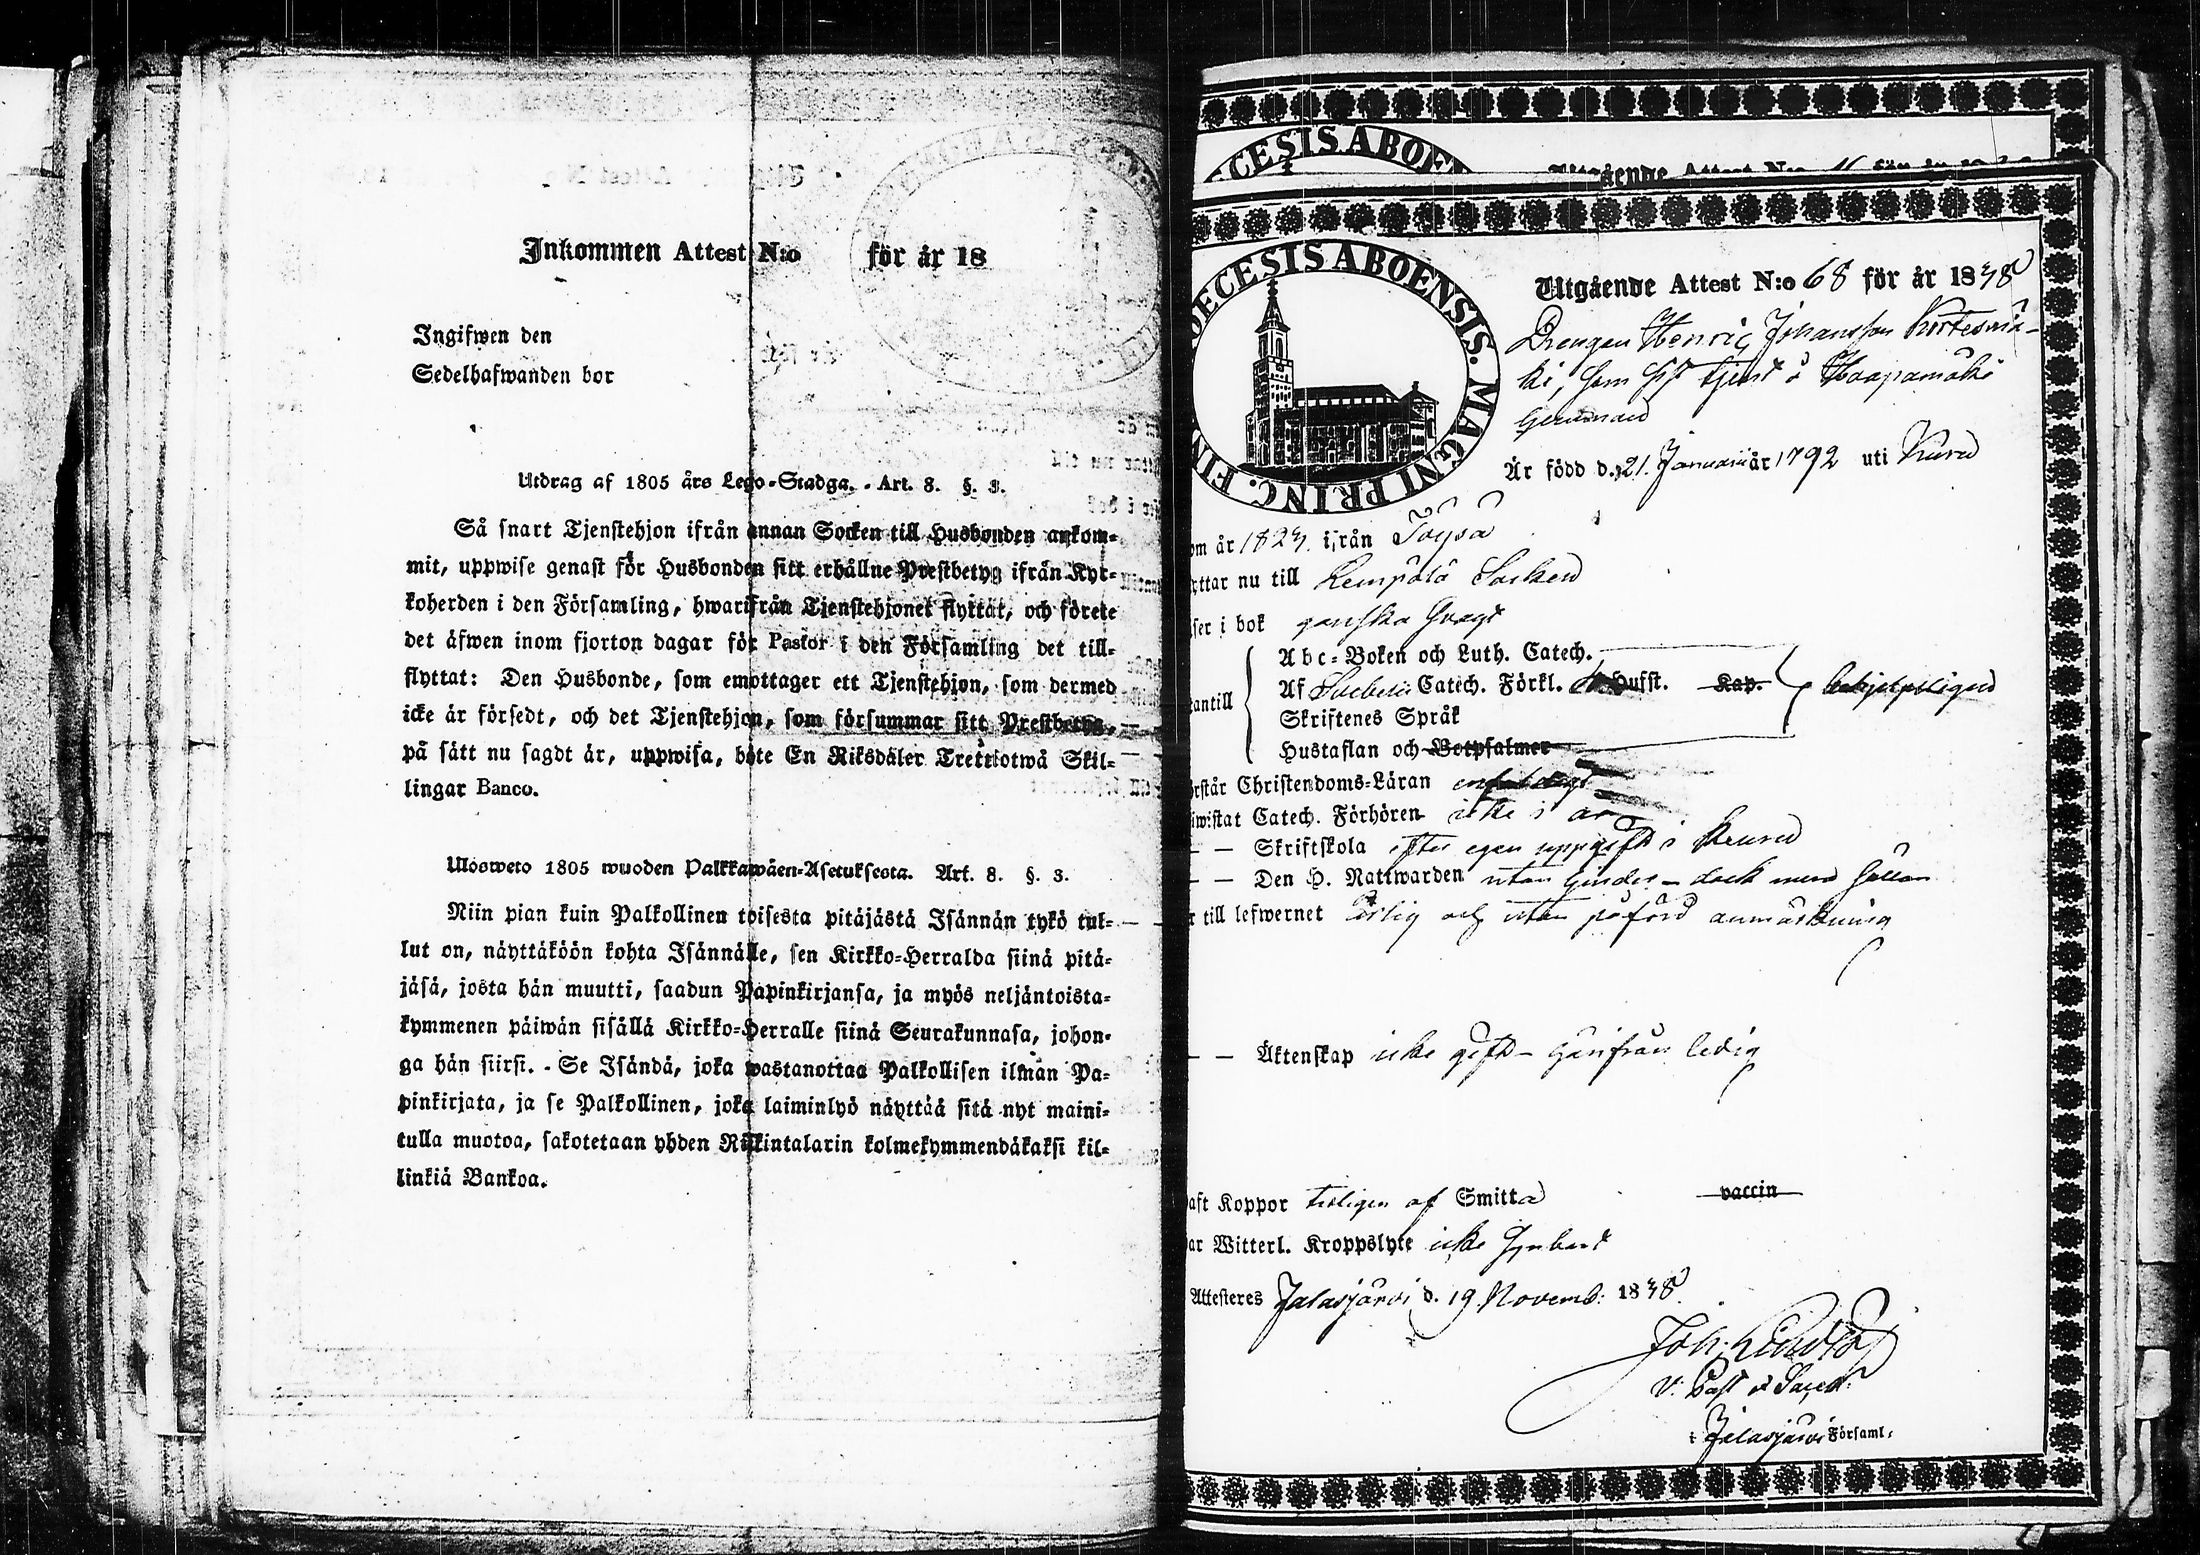 Inkommen Attest N:o för år 18
Ingifwen den
Sedelhafwanden bor
Utdrag af 1805 års Lego-Stadga. Art. 8. §. 3.
Så snart Tjenstehjon ifrån annan Socken till Husbonden ankom=
mit, uppwise genast för Husbonden sitt erhållne Prestbetyg ifrån Kyr=
koherden i den Församling, hwarifrån Tjenstehjonet flyttat, och förete
det äfwen inom fjorton dagar för Pastor i den Församling det till=
flyttat: Den Husbonde, som emottager ett Tjenstehjon, som dermed
icke är försedt, och det Tjenstehjon, som försummar sitt Prestbetyg,
på sätt nu sagdt är, uppwisa, böte En Riksdaler Trettiotwå Skil=
lingar Banco.
Ulosweto 1805 wuoden Palkkawäen-Asetuksesta. Art. 8. §. 3.
Niin pian kuin Palkollinen toisesta pitäjästä Isännän tykö tul=
lut on, näyttäköön kohta Isännälle, sen Kirkko=Herralda siinä pitä=
jäsä, josta hän muutti, saadun Papinkirjansa, ja myös neljäntoista=
kymmenen päiwän sisällä Kirkko=Herralle siinä Seurakunnasa, johon=
ga hän siirsi. - Se Isändä, joka wastanottaa Palkollisen ilman Pa=
pinkirjata, ja se Palkollinen, joka laiminlyö näyttää sitä nyt maini=
tulla muotoa, sakotetaan yhden Riikintalarin kolmekymmendäkaksi kil=
linkiä Bankoa.
ECESIS ABOEN
Utgående Attest N:o för år 18
DECESIS ABOENSIS. MAGNI PRINC. FIN
Utgående Attest N:o 68 för år 1838
Drengen Henric Johansson Kortesmä-
ki, som sist tjent å Haapamäki
hemman
Är född d. 21. Januarii år 1792 uti Kuru
om år 1823. ifrån Töysä
yttar nu till Lempälä Socken
ser i bok ganska svagt
antill
Abc=Boken och Luth. Catech.
Af Svebelii Catech. Förkl. Hufst. Kap.
Skriftenes Språk
Hustaflan och Botpsalmer
rstår Christendoms=Läran enfaldigt
iwistat Catech. Förhören icke i år
— — Skriftskola efter egen uppgift i Kuru
— — Den H. Nattwarden utan hinder - dock med sällan
r till lefwernet ärlig och utan påförd anmärkning
— — Äktenskap icke gift - härifrån ledig
aft Koppor troligen af Smitta vaccin
ar Witterl. Kroppslyte icke synbart
Attesteres Jalasjärvi d. 19 Novemb: 1838
Joh:
V. Past o Sacell:
i Jalasjärvi Församl: